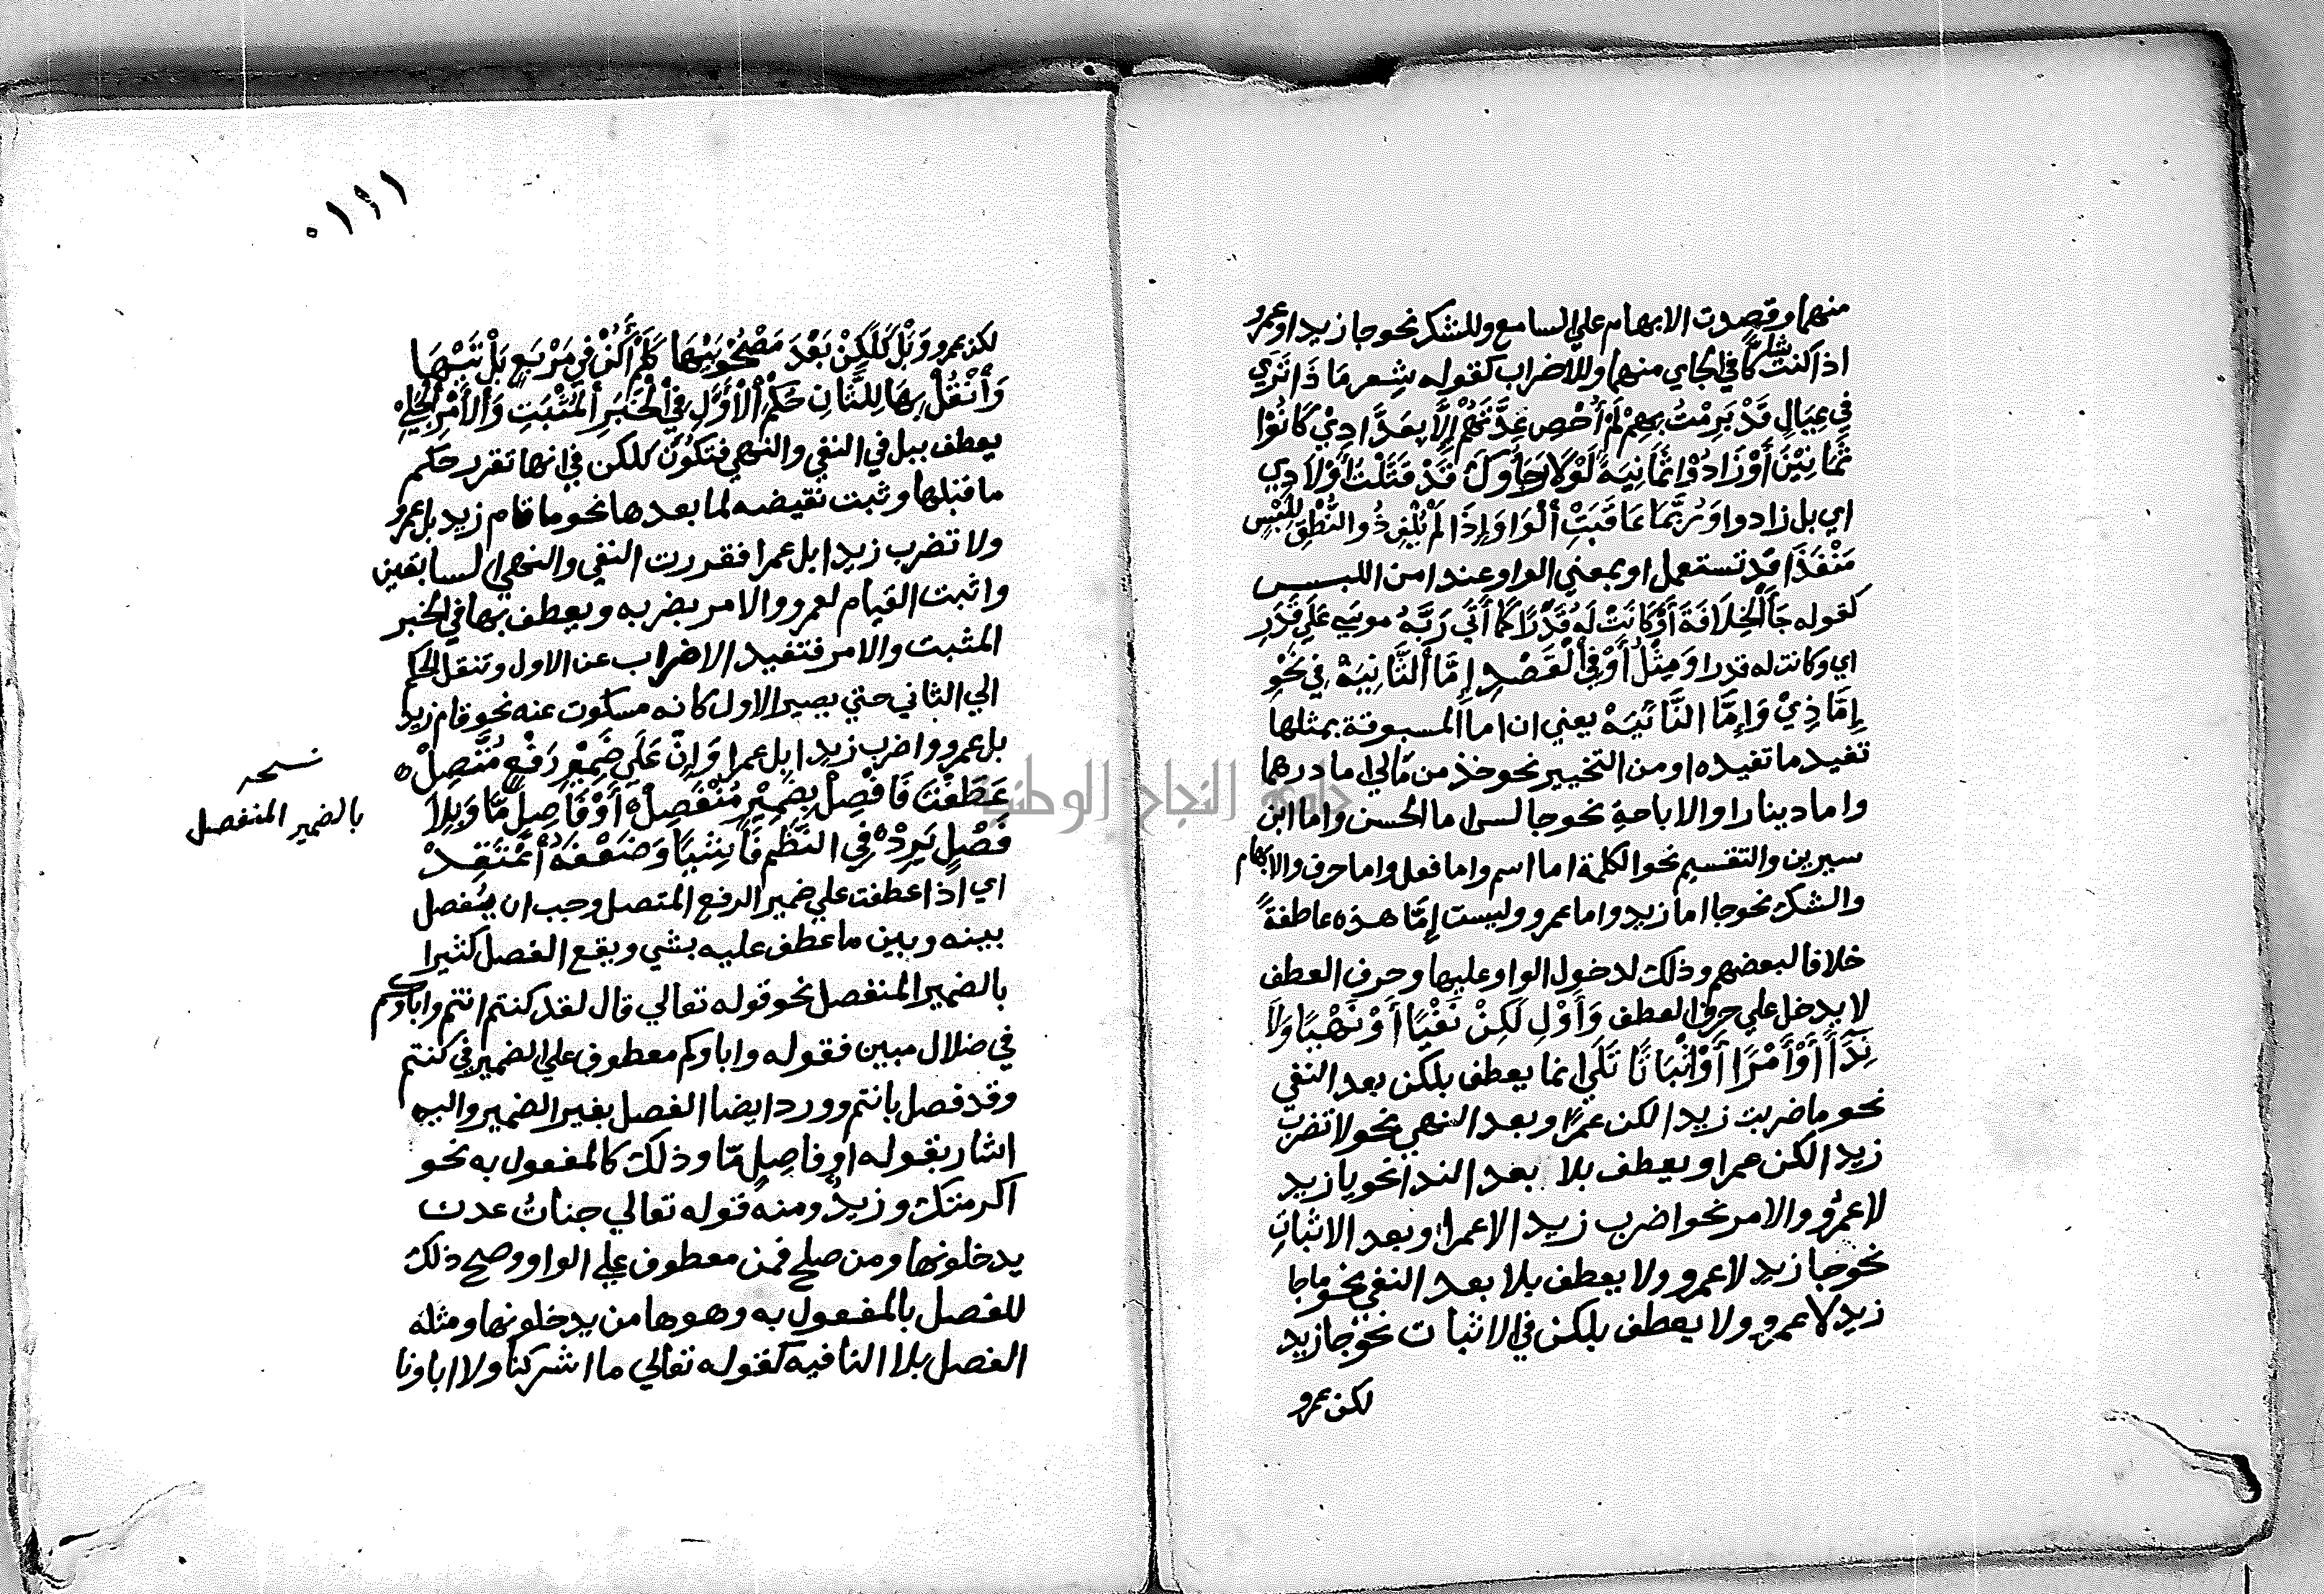 منهما وقصدت الابهام علي السامع وللشك نحو جا زيد او عمرو
اذا كنت شاكا في الجاي منهما وللاضراب كقوله شعر مَاذَا تَرَي
فِي عِيَالٍ قَدْ بَرِمْتُ بِهِمْ لَمْ أُحْصِ عِدَّتَهُمْ إِلَّا بِعَدَّادِيْ كَانُوْا
ثَمَانِيْنَ أَوْ زَادُوْا ثَمَانِيَةً لَوْلَا رَجَاؤُكَ قَدْ قَتَلْتُ أَوْلَادِي
اي بل زادوا وَرُبَّمَا عَاقَبَتِ أَلْوَاوَ إِذَا لَمْ يُلْفِ ذُو النُّطْقِ لِلَبْسٍ
مَنْفَذَا قد تستعمل او بمعني الواو عند امن اللبس
كقوله جَا أَلْخِلَافَةَ أَوْ كَانَتْ لَهُ قَدَرًا كَمَا أَتَي رَبَّهُ موسَي عَلَي قَدَرِ
اي وكانت له قدرا وَمِثْلُ أَوْ فِي أَلْقَصْدِ إِمَّا أَلثَّانِيَهْ فِي نَحْوِ
إِمَّا ذِيْ وَإِمَّا النَّائِيَهْ يعني ان اما المسبوقة بمثلها
تفيد ما تفيده او من التخيير نحو خذ من مَالي اما درهما
واما دينارا والاباحة نحو جالس اما الحسن واما ابن
سيرين والتقسيم نحو الكلمة اما اسم واما فعل واما حرف والابهام
والشك نحو جا اما زيد واما عمرو وليست إِمَّا هذه عاطفةً
خلافا لبعضهم وذلك لدخول الواو عليها وحرف العطف
لا يدخل علي حرف العطف وَأَوْلِ لَكِنْ نَفْيًا أَوْ نَهْيًا وَلَا
نِدَآءً أَوْ أَمْرًا أَوْ إثْبَاتًا تَلَي انما يعطف بلكن بعد النفي
نحو ما ضربت زيدا لكن عمرًا وبعد النهي نحو لا تضرب
زيدا لكن عمرا ويعطف بلا بعد الندا نحو يا زيد
لا عمرُو والامر نحو اضرب زيدا لا عمرا وبعد الاثباتِ
نحو جا زيد لا عمرو ولا يعطف بلا بعد النفي نحو ما جا
زيد لا عمرو ولا يعطف بلكن في الاثبات نحو جا زيد
لكن عمرو
لكن عمرو وَبَلْ كَلَكِنْ بَعْدَ مَصْحُوْبَيْهَا كَلَمْ أَكُنْ فِي مَرْبَعٍ بَلْ تَيْهَا
وَأَنْقُلْ بِهَا لِلثَّانِ حُكْمَ أَلْأَوَّلِ فِي أَلْخَبَرِ أَلْمُثْبَتِ وَأَلأَمْرِ أَلْجَلِي
يعطف ببل في النفي والنهي فتكون كلكن في انها تقرر حكم
ما قبلها وثبت نقيضه لما بعدها نحو ما قام زيد بل عمرو
ولا تضرب زيدا بل عمرا فقررت النفي والنهي السابقين
واثبت القيام لعمرو والامر بضربه ويعطف بها في الخبر
المثبت والامر فتفيد الاضراب عن الاول وتنقل الحكم
الي الثاني حتي يصير الاول كانه مسكوت عنه نحو قام زيد
بل عمرو واضرب زيدا بل عمرا وَإِنْ عَلَي ضَمِيْرِ رَفْعٍ مُتَّصِلْ ه
عَطَفْتَ فَافْصِلْ بِضَمِيْرٍ مُنْفَصِلْ أَوْ فَاصِلٍ مَّا وَبِلَا
فَصْلٍ يَرِدْ فِي النَّظْمِ فَاشِيًا وَضَعْفَهُ أَعْتَقِدْ
اي اذا عطفت علي ضمير الرفع المتصل وجب ان يُفصل
بينه وبين ما عطف عليه بشي ويقع الفصل كثيرا
بالضمير المنفصل نحو قوله تعالي قال لقد كنتم انتم واباوكم
في ضلال مبين فقوله واباوكم معطوف علي الضمير في كنتم
وقد فصل بانتم وورد ايضا الفصل بغير الضمير واليه
اشار بقوله او فاصِلٍ مّا وذلك كالمفعول به نحو
اكرمتك وزيدٌ ومنه قوله تعالي جناتُ عدن
يدخلونها ومن صلح فمن معطوف علي الواو وصح ذلك
للفصل بالمفعول به وهو ها من يدخلونها ومثله
الفصل بلا النافيه كقوله تعالي ما اشركنا ولا اباونا
نسخه
بالضمير المنفصل
جامعة النجاح الوطنية